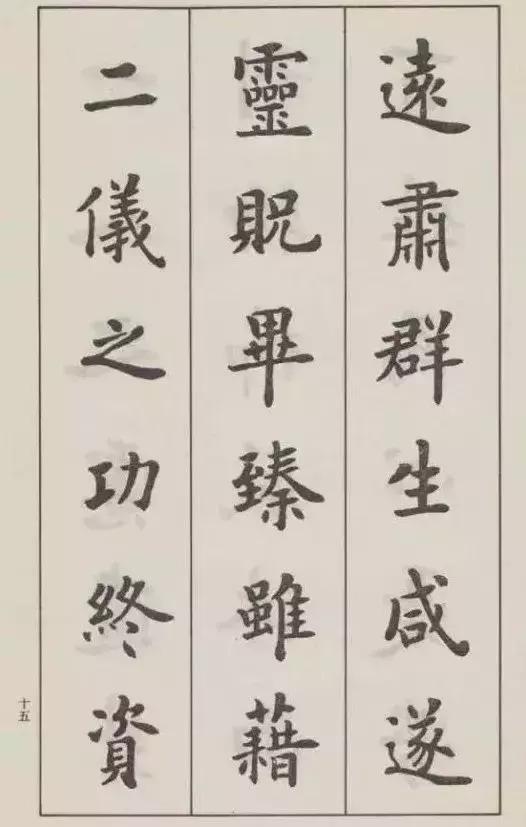 遠肅群生咸遂
靈貺畢臻雖藉
二儀之功終資
十五